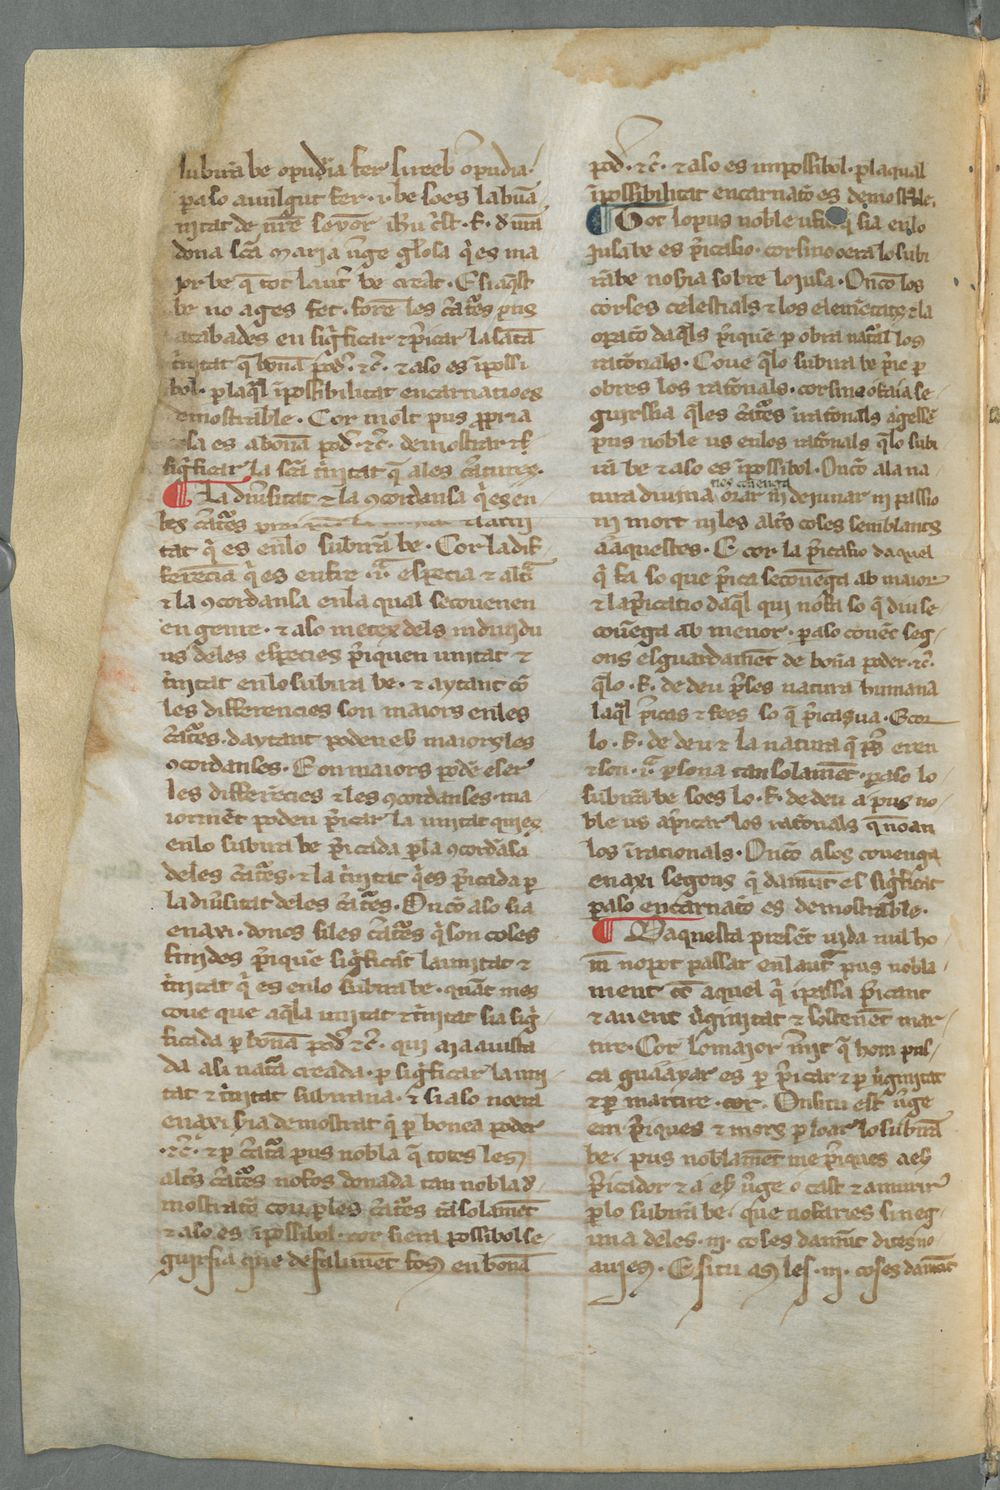 lubirã be opudia fer si reeb opudia.
per aso auulgut fer .i. be so es la humã
nitat de nr̃e seyor ih̃u xp̃st .F. d̃ nr̃a
dona scã Maria ṽge gl̃osa q̃ es ma
jor be q̃ tot lautr̃ be creat. E si aq̃st
be no ages fet. foren les creat̃es pus
acabades en sig̃ficar e p̃dicar la santa
t̃nitat q̃ bonea pod̃. etc̃. et aso es ĩpossi
bol. per laq̃l ĩpossibilitat encarnatio es
demostrable. Cor molt pus propria
cosa es a bonea pod̃. etc̃. demostrar et
sig̃ficar la scã t̃nitat q̃ ales creatures.
¶ La diũsitat et la concordansa q̃ es en
les creat̃es et la uni
tat q̃ es en lo subirã be. Cor la dif
ferencia q̃ es enfre .i.ª especia et altrã
et la concordansa en la qual se couenen
en genre. et aso metex dels indiuidu
us deles especies p̃diquen unitat et
t̃nitat en lo subirã be. et aytant cõ
les differencies son maiors en les
creat̃es. daytant poden eẽr maiors les
concordanses. E on maiors poden esser
les differẽcies et les concordanses. ma
iormẽt poden p̃dicar la unitat qui es
en lo subirã be p̃dicada per la concordãsa
deles creat̃es. et la t̃nitat q̃ es p̃dicada per
la diũsitat deles creat̃es. On cõ aso sia
enaxi. doncs si les creat̃es q̃ son coses
finides p̃diquen sig̃ficãt la unitat et
t̃nitat q̃ es en lo subirã be. quãt mes
coue que aq̃la unitat et t̃nitat sia sig̃
ficada per bonea pod̃. etc̃. qui aia aiusta
da asi natã creada. per sig̃ficar la uni
tat et t̃nitat subirana. et si aso no era
enaxi sia demostrat q̃ per bonea poder
.etc̃. et per creatã pus nobla q̃ totes les
altr̃s creat̃es no fos donada tan nobla de
mostratio com per les creat̃es tã solamẽt
et aso es ĩpossibol. cor si era possibol se
guir sia que defalimẽt fos en bonea
pod̃. etc̃. et aso es impossibol. per la qual
ĩpossibilitat encarnatio es demostrable.
¶ Tot lo pus noble us q̃ sia en lo
jusa be es p̃dicatio. cor si no o era lo subi
rã be no sia sobre lo jusa. On cõ los
corses celestials et los elemẽtats et la
operatio daq̃ls p̃diquen per obra natural los
rationals. Coue q̃ lo subirã be p̃dic per
obres los rationals. cor si no o faia se
guir sia q̃ les creat̃es irationals agessẽ
pus noble us en los rationals q̃ lo subi
rã be et aso es ĩpossibol. On cõ a la na
tura diuina nos couenga orar ni dejunar ni passio
ni mort ni les altr̃s coses semblants
daquestes. E cor la p̃dicatio daquel
q̃ fa so que p̃dica se couenga ab maior
et la p̃dicatio daq̃l qui no fa so q̃ diu se
couenga ab menor. per aso couẽc seg
ons esguardamẽt de bonea poder. etc̃.
q̃ lo .F. de deu p̃ses natura humana
laq̃l p̃dicas et fees so q̃ p̃dicaua. E cor
lo .F. de deu et la natura q̃ p̃s eren
et son .i.ª persona tan solamẽt. per aso lo
subirã be so es lo .F. de deu a pus no
ble us a p̃dicar los rationals q̃ no an
los irracionals. On cõ a los couenga
enaxi segons q̃ damũt es sig̃ficat
per aso encarnatio es demostrable.
¶ Daquesta presẽt uida nul ho
m no pot passar en lautrã pus nobla
ment cõ aquel q̃ i passa p̃dicant
et auent ṽginitat et sostenẽt mar
tire. Cor lo maior merit q̃ hom pus
ca guãayar es per p̃dicar et per ṽginitat
et per martire. cor. On si tu est ṽge
em p̃diques et mors per loar lo subirã
be. pus noblamẽt me p̃diques a eẽr
p̃dicador et a eẽr ṽge o cast et a murir
per lo subirã be. que no faries si neg
una deles .iii. coses damũt dites no
auies. E si tu as les .iii. coses damũt